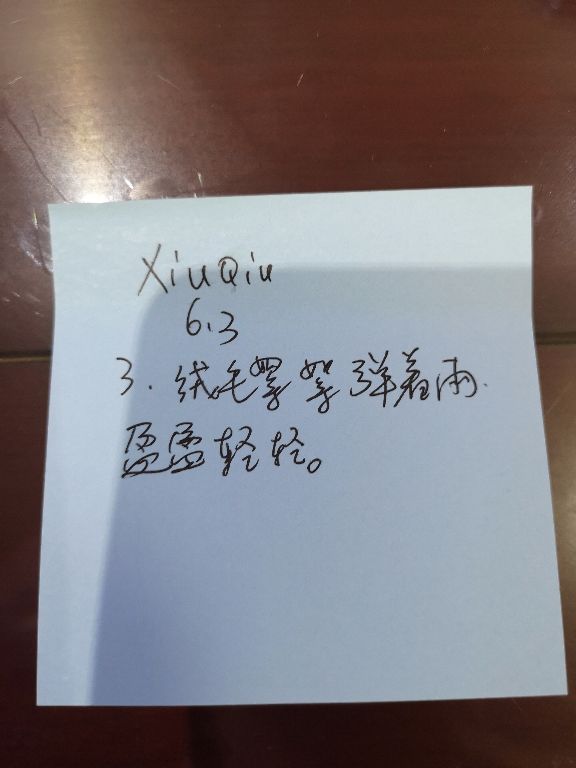 XiuQiu
6.3
3.绒毛絮絮弹着雨.
盈盈轻轻。